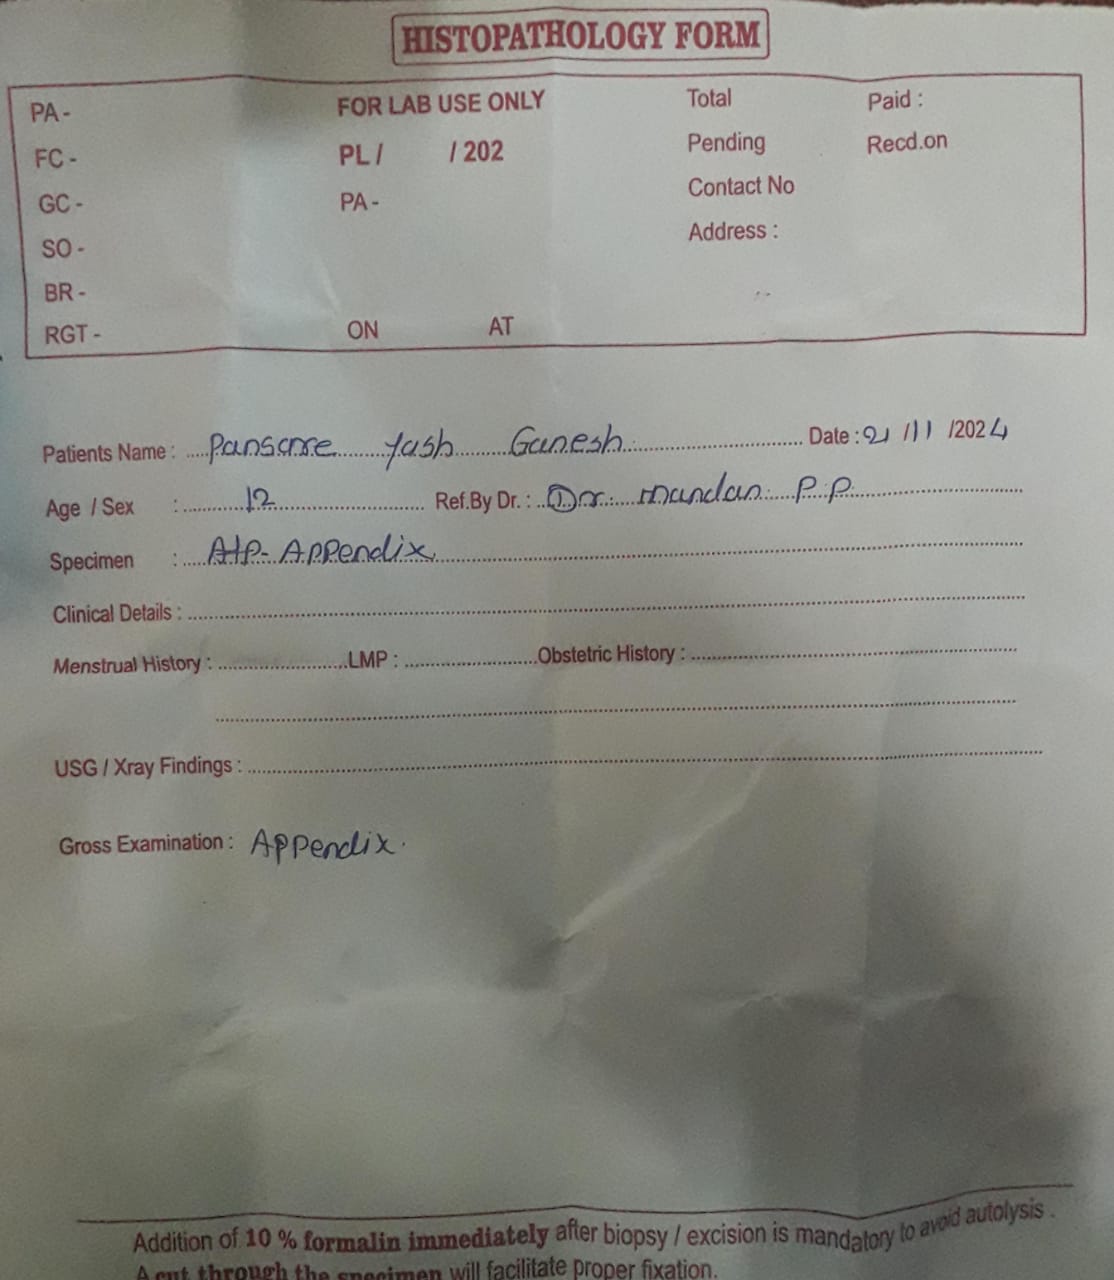 HISTOPATHOLOGY FORM
PA - FOR LAB USE ONLY Total Paid :
FC - PL / / 202 Pending Recd.on
GC - PA - Contact No
SO - Address :
BR -
RGT - ON AT
Patients Name : Pansare Yash Ganesh Date : 21 /11 /2024
Age / Sex : 12 Ref.By Dr. : Dr. mandan P.P
Specimen : Appendix
Clinical Details :
Menstrual History : LMP : Obstetric History :
USG / Xray Findings :
Gross Examination : Appendix.
Addition of 10 % formalin immediately after biopsy / excision is mandatory to avoid autolysis .
A cut through the specimen will facilitate proper fixation.